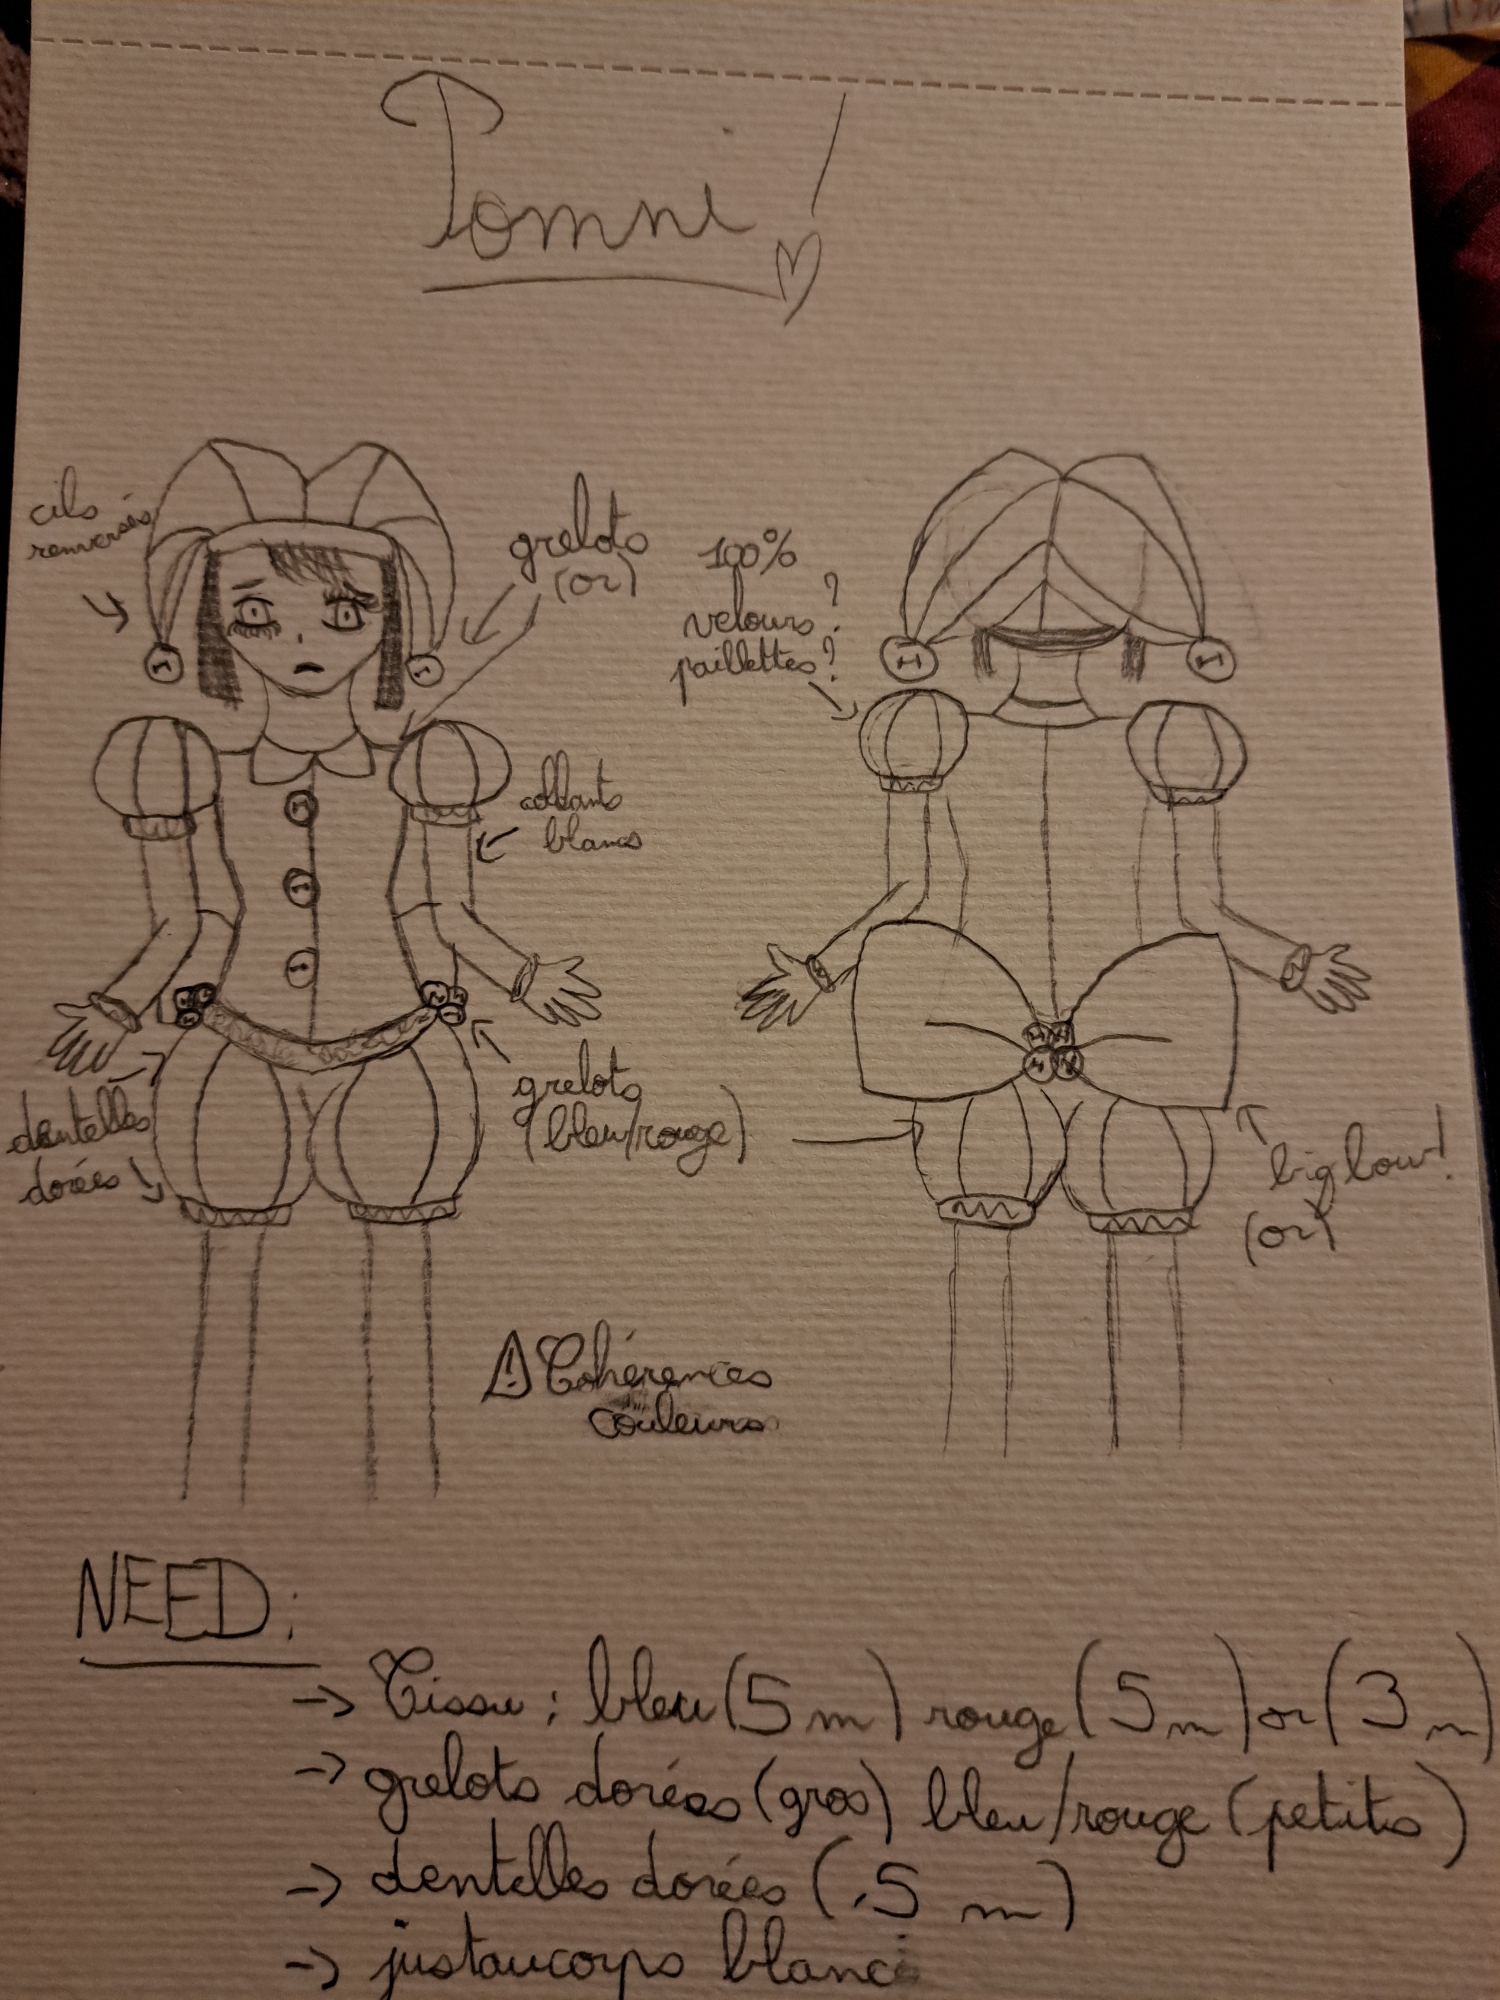 Pomni !
cils
renversés
grelots
(or)
100%
velours ?
paillettes ?
collants
blancs
dentelles
dorées
grelots
(bleu/rouge)
big bow !
(or)
⚠ Cohérences
couleurs
NEED :
→ Tissu : bleu (5 m) rouge (5 m) or (3 m)
→ grelots dorées (gros) bleu/rouge (petits)
→ dentelles dorées (.5 m)
→ justaucorps blanc